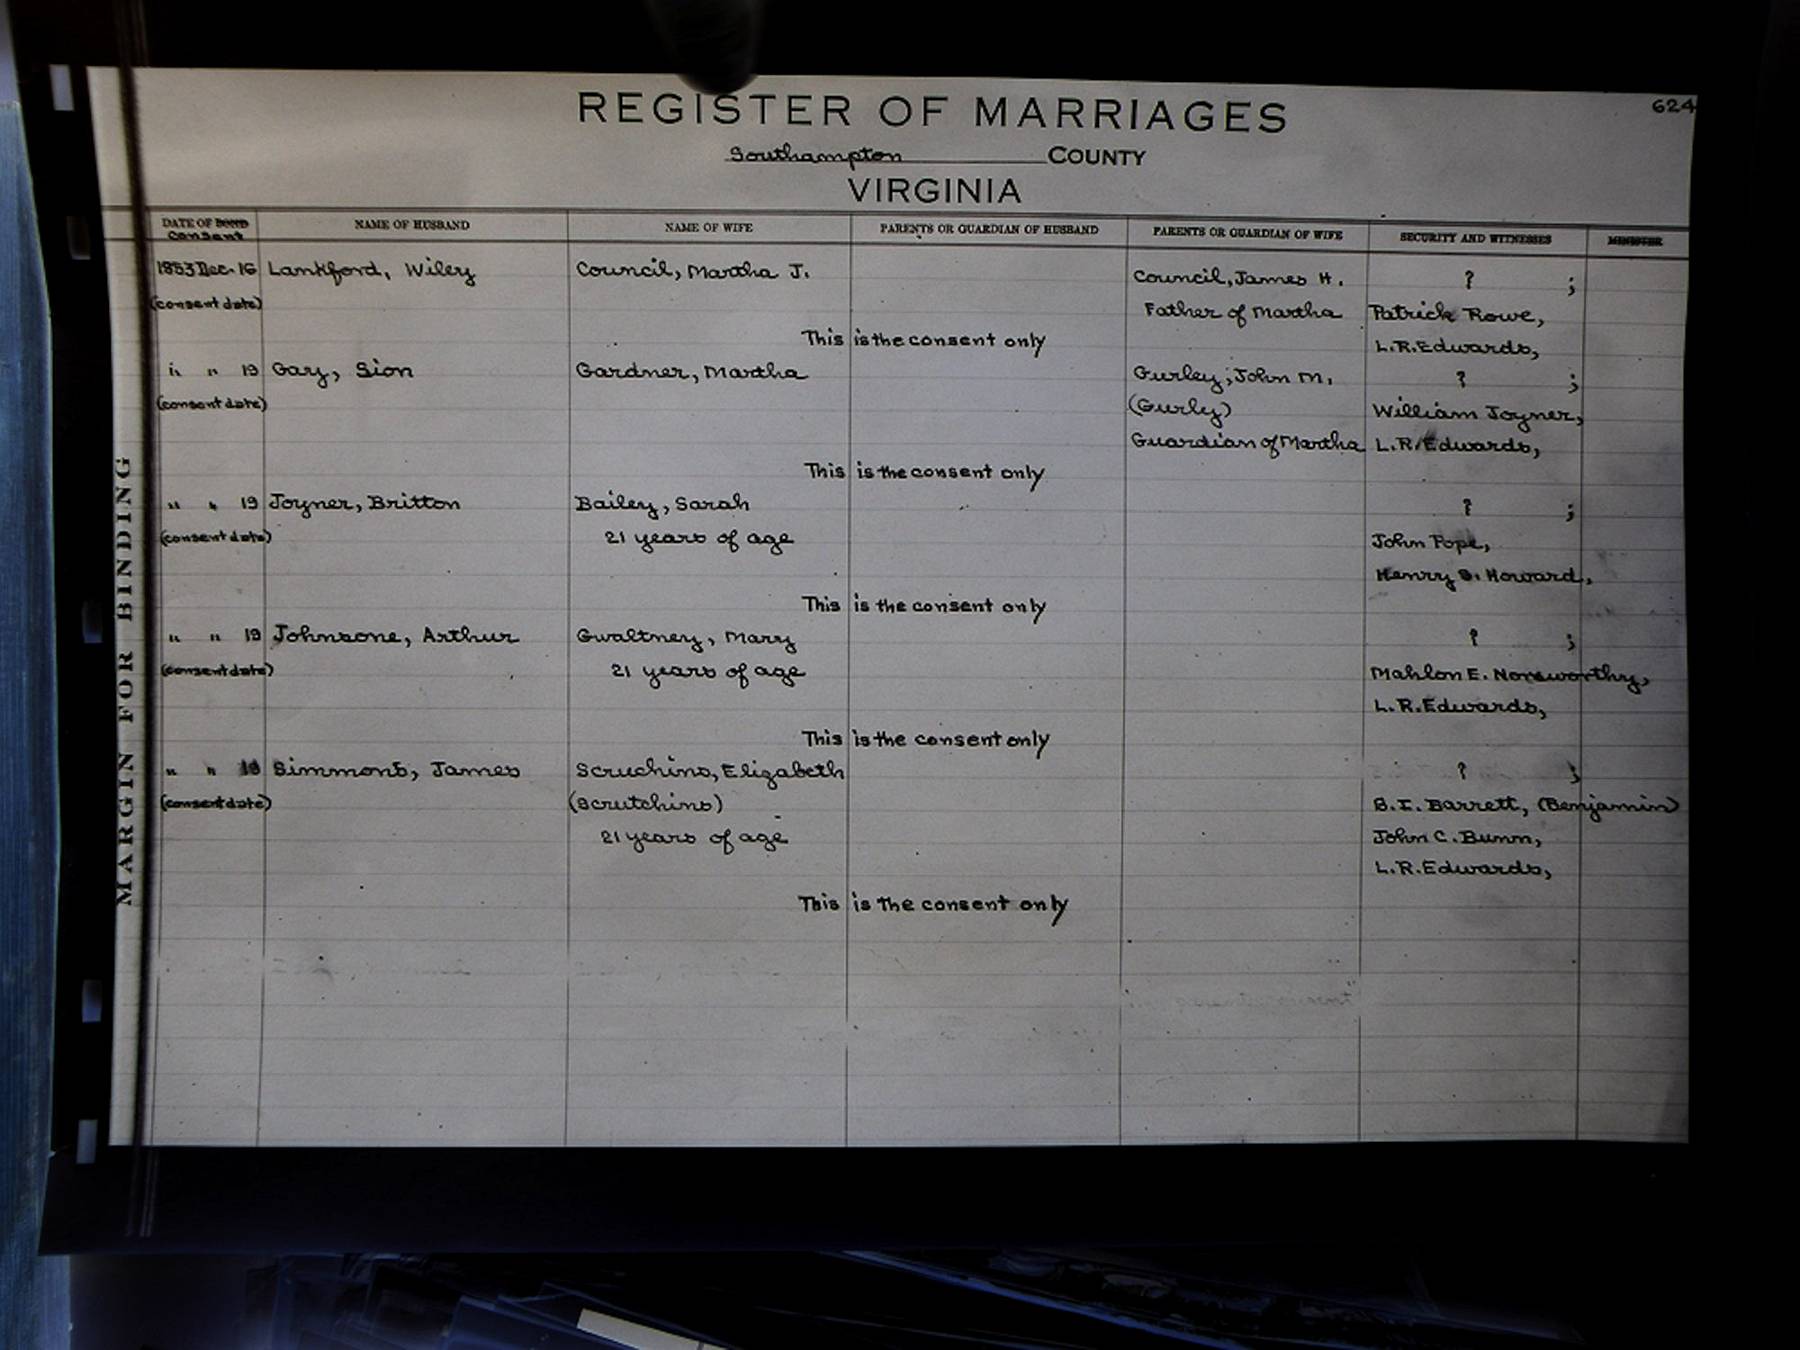 624
REGISTER OF MARRIAGES
Southampton COUNTY
VIRGINIA
DATE OF BOND NAME OF HUSBAND NAME OF WIFE PARENTS OR GUARDIAN OF HUSBAND PARENTS OR GUARDIAN OF WIFE SECURITY AND WITNESSES MINISTER
Consent
1853 Dec. 16 Lankford, Wiley Council, Martha J. Council, James H. ? ;
(consent date) Father of Martha Patrick Rowe,
This is the consent only L.R. Edwards,
" " 19 Gary, Sion Gardner, Martha Gurley, John M. ? ;
(consent date) (Gurly) William Joyner,
Guardian of Martha L.R. Edwards,
This is the consent only
" " 19 Joyner, Britton Bailey, Sarah ? ;
(consent date) 21 years of age John Pope,
Henry B. Howard,
This is the consent only
" " 19 Johnsone, Arthur Gwaltney, Mary ? ;
(consent date) 21 years of age Mahlon E. Norsworthy,
L.R. Edwards,
This is the consent only
" " 19 Simmons, James Scruchins, Elizabeth ? ;
(consent date) (Scrutchins) B.I. Barrett, (Benjamin)
21 years of age John C. Bunn,
L.R. Edwards,
This is the consent only
MARGIN FOR BINDING